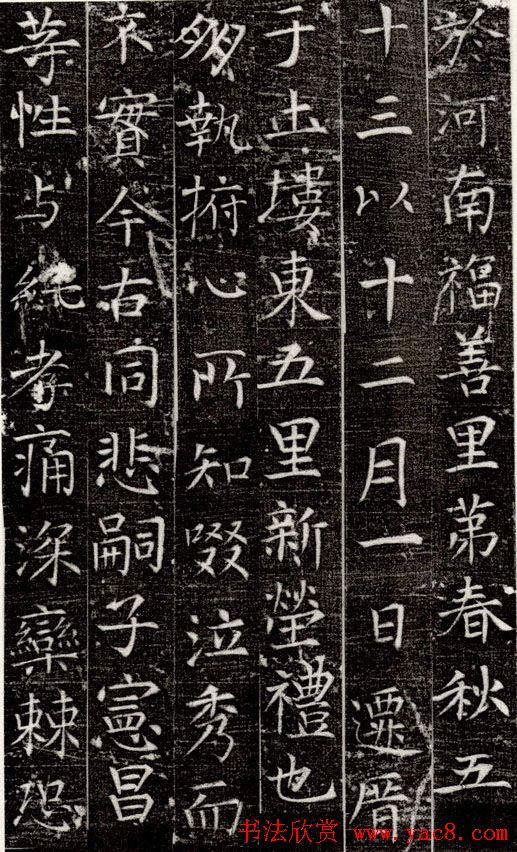 於河南福善里苐春秋五
十三以十二月一日遷厝
于土塿東五里新塋禮也
朋執拊心所知啜泣秀而
不實今古同悲嗣子憲昌
等性与純孝痛深欒棘恐
书法欣赏 www.yac8.com